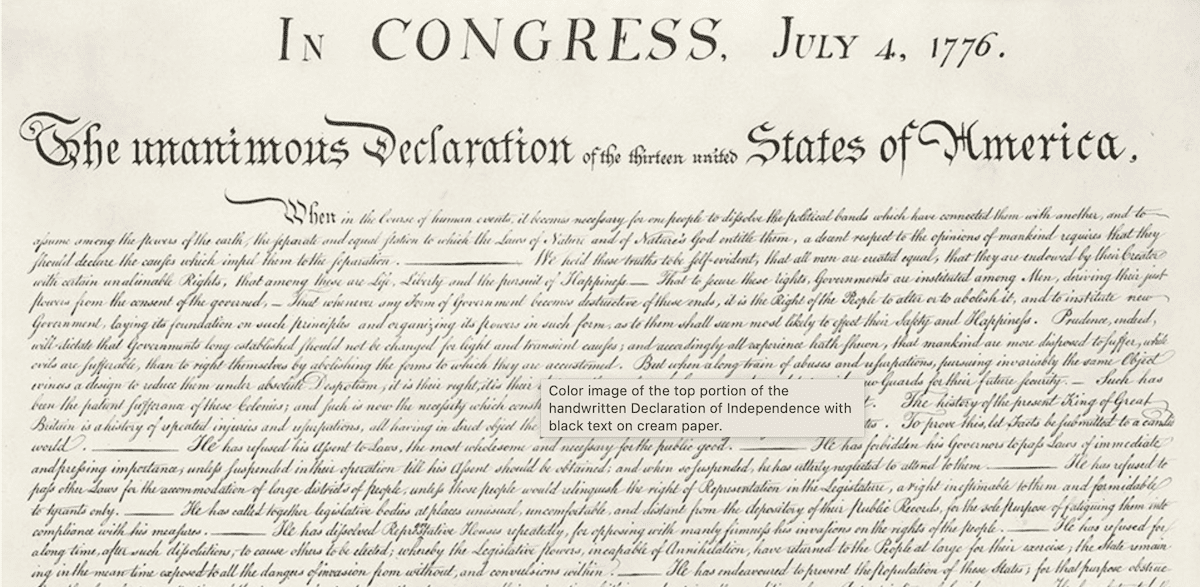 IN CONGRESS, JULY 4, 1776.
The unanimous Declaration of the thirteen united States of America,
When in the Course of human events, it becomes necessary for one people to dissolve the political bands which have connected them with another, and to
assume among the powers of the earth, the separate and equal station to which the Laws of Nature and of Nature's God entitle them, a decent respect to the opinions of mankind requires that they
should declare the causes which impel them to the separation. ——— We hold these truths to be self-evident, that all men are created equal, that they are endowed by their Creator
with certain unalienable Rights, that among these are Life, Liberty and the pursuit of Happiness — That to secure these rights, Governments are instituted among Men, deriving their just
powers from the consent of the governed, — That whenever any Form of Government becomes destructive of these ends, it is the Right of the People to alter or to abolish it, and to institute new
Government, laying its foundation on such principles and organizing its powers in such form, as to them shall seem most likely to effect their Safety and Happiness. Prudence, indeed,
will dictate that Governments long established should not be changed for light and transient causes; and accordingly all experience hath shewn, that mankind are more disposed to suffer, while
evils are sufferable, than to right themselves by abolishing the forms to which they are accustomed. But when a long train of abuses and usurpations, pursuing invariably the same Object
evinces a design to reduce them under absolute Despotism, it is their right, it is their new Guards for their future security. — Such has
been the patient sufferance of these Colonies; and such is now the necessity which The history of the present King of Great
Britain is a history of repeated injuries and usurpations, all having in direct object the To prove this, let Facts be submitted to a candid
world. ——— He has refused his Assent to Laws, the most wholesome and necessary for the public good. ——— He has forbidden his Governors to pass Laws of immediate
and pressing importance, unless suspended in their operation till his Assent should be obtained; and when so suspended, he has utterly neglected to attend to them ——— He has refused to
pass other Laws for the accommodation of large districts of people, unless those people would relinquish the right of Representation in the Legislature, a right inestimable to them and formidable
to tyrants only. ——— He has called together legislative bodies at places unusual, uncomfortable, and distant from the depository of their public Records, for the sole purpose of fatiguing them into
compliance with his measures. ——— He has dissolved Representative Houses repeatedly, for opposing with manly firmness his invasions on the rights of the people. ——— He has refused for
a long time, after such dissolutions, to cause others to be elected; whereby the Legislative powers, incapable of Annihilation, have returned to the People at large for their exercise; the State remain
ing in the mean time exposed to all the dangers of invasion from without, and convulsions within. ——— He has endeavoured to prevent the population of these States; for that purpose obstruc
Color image of the top portion of the
handwritten Declaration of Independence with
black text on cream paper.